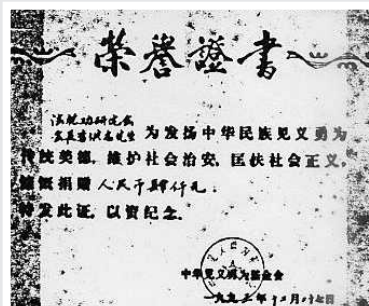 荣誉證书
法轮功研究会
会长李洪志先生 为发扬中华民族见义勇为
传统美德，维护社会治安，匡扶社会正义，
慷慨捐赠 人民币肆仟元。
特发此证，以资纪念。
中华见义勇为基金会
一九九三年十二月廿七日